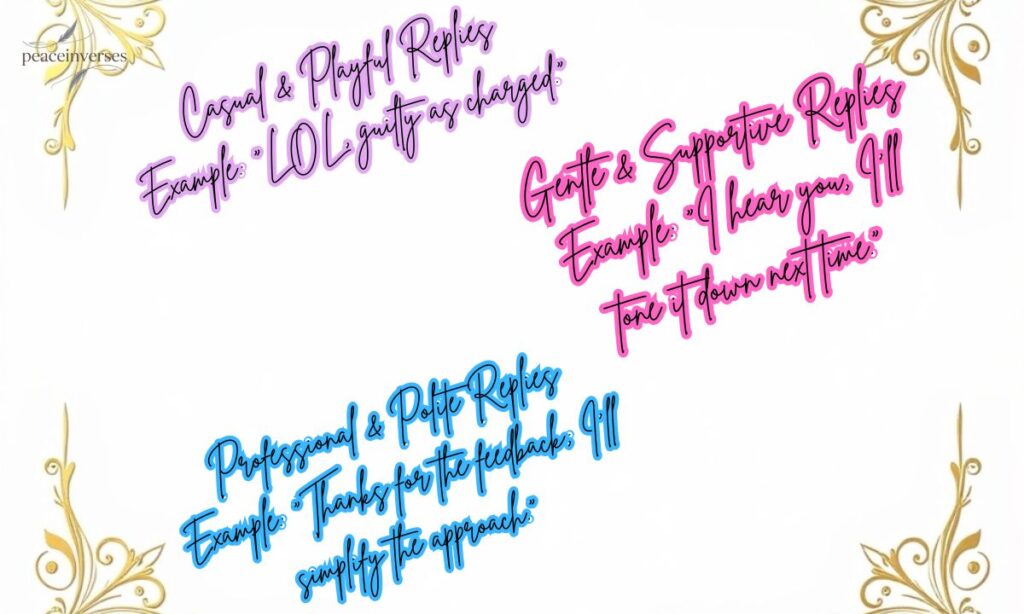 peaceinverses
Casual & Playful Replies
Example: "LOL, guilty as charged."
Gentle & Supportive Replies
Example: "I hear you, I'll
tone it down next time."
Professional & Polite Replies
Example: "Thanks for the feedback; I'll
simplify the approach."